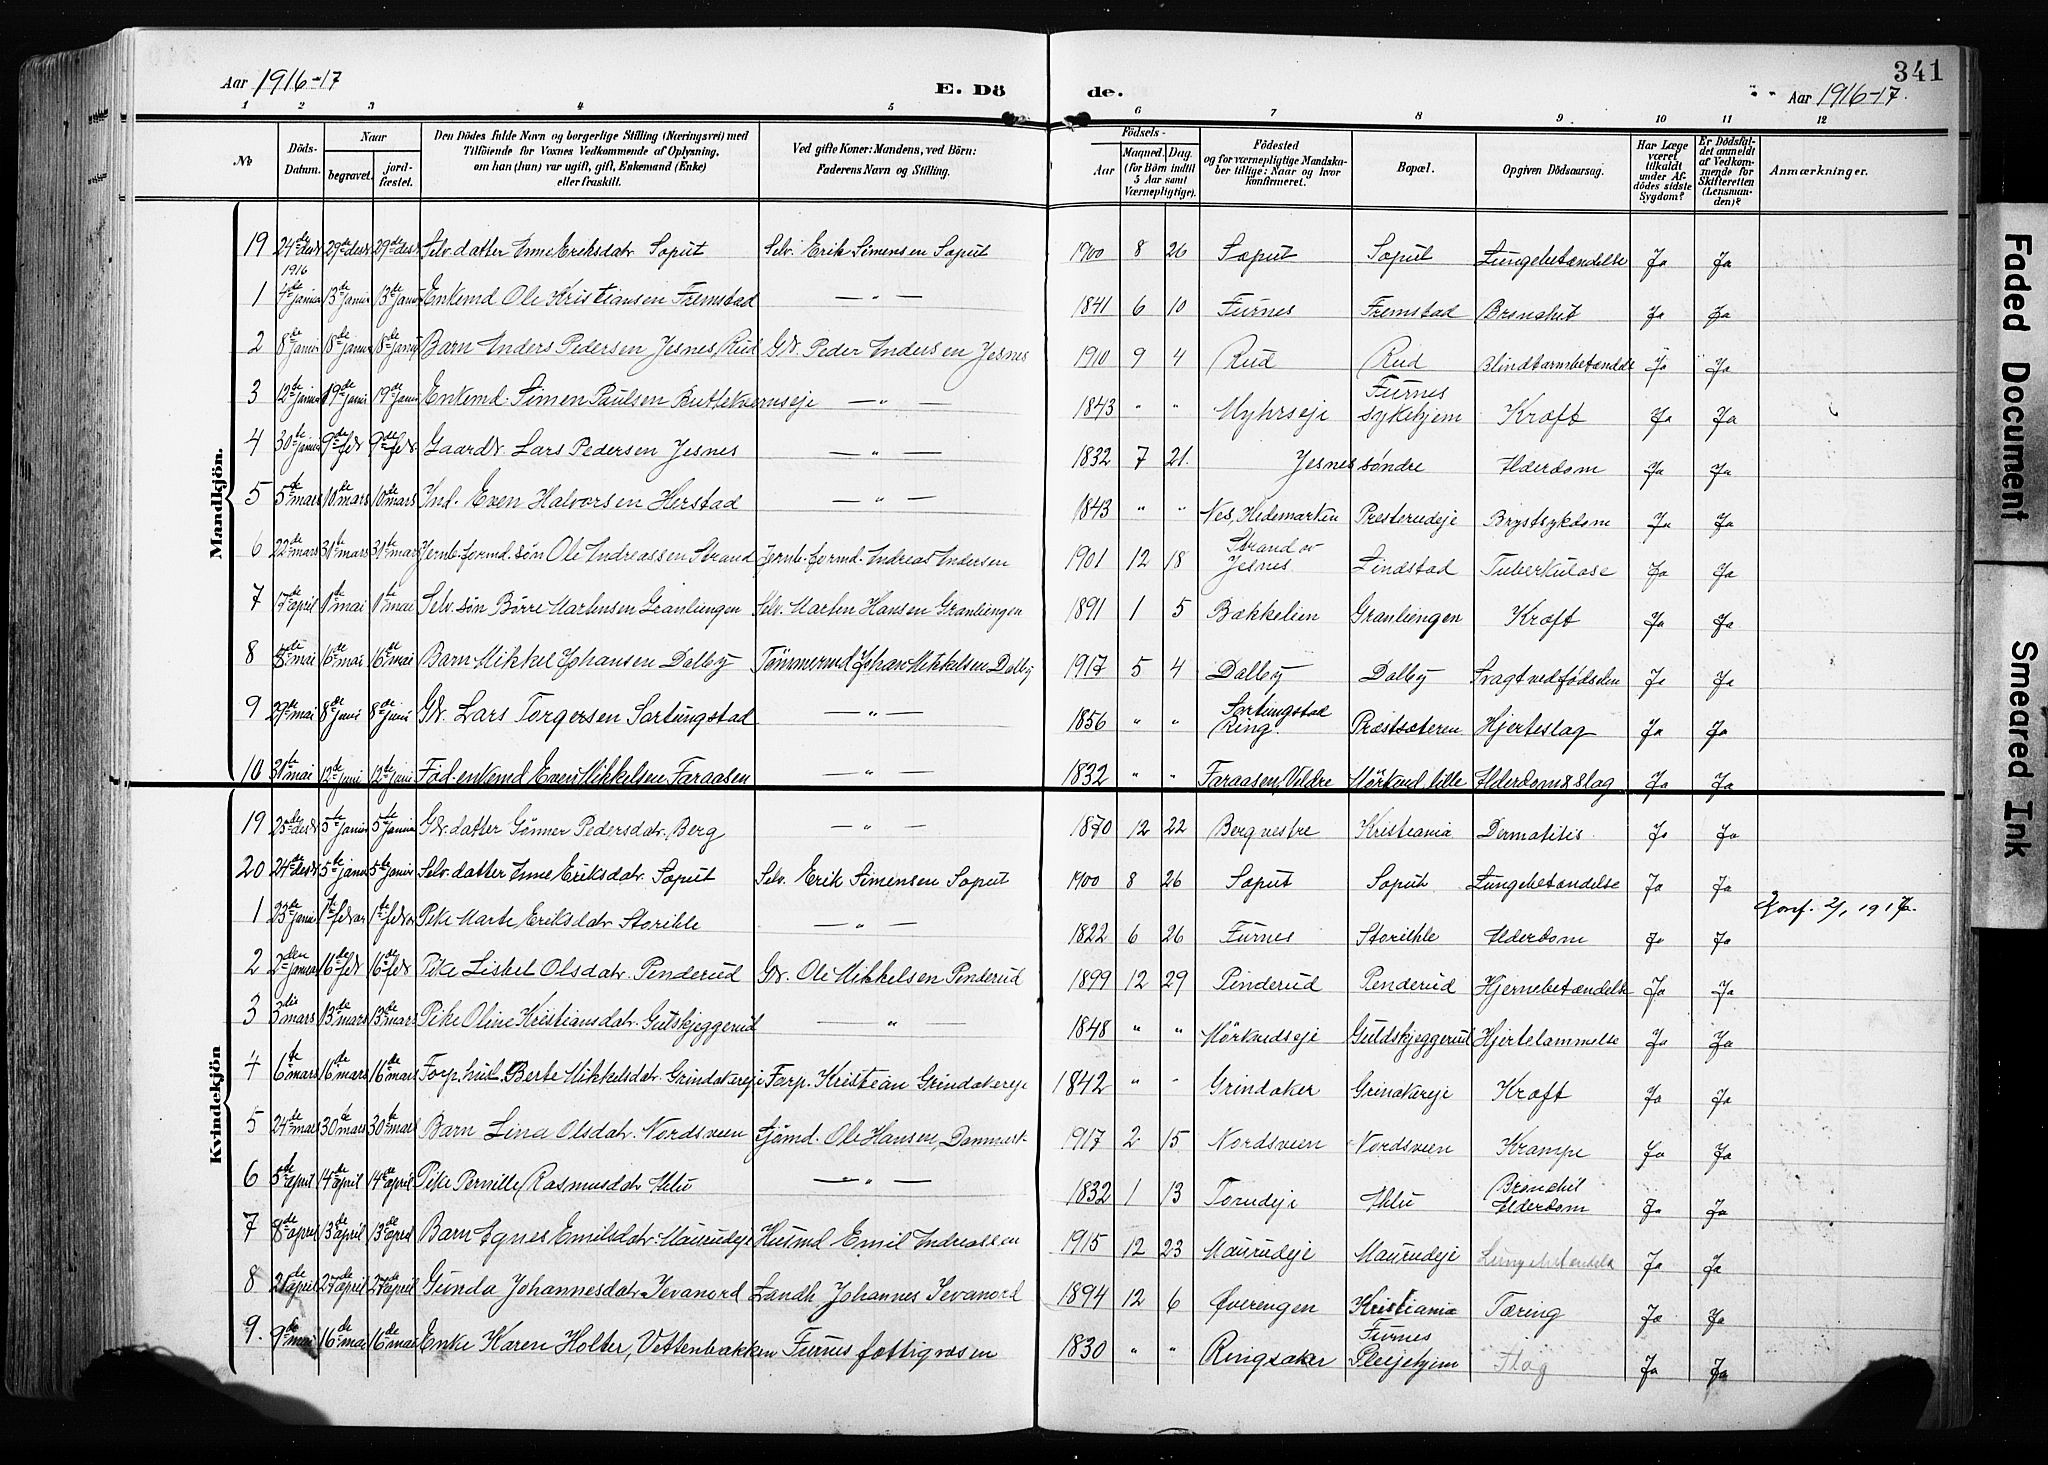 Aar 1916-17
E. Dö
de.
341
Aar 1916-17.
1 2 3 4 5 6 7 8 9. 10 11 12
No
Döds-Datum.
Naar
begravet.
jord-fæstet.
Den Dödes fulde Navn og borgerlige Stilling (Næringsvei) med
Tilföiende for Voxnes Vedkommende af Oplysning,
om han (hun) var ugift, gift, Enkemand (Enke)
eller fraskilt.
Ved gifte Koner: Mandens, ved Börn:
Faderens Navn og Stilling.
Födsels-
Aar
Maaned. Dag.
(for Börn indtil
5 Aar samt
Værnepligtige).
Födested
og for værnepligtige Mandska-
ber tillige: Naar og hvor
konfirmeret.
Bopæl.
Opgiven Dödsaarsag.
Har Læge
været
tilkaldt
under Af-
dödes sidste
Sygdom?
Er Dödsfal-
det anmeldt
af Vedkom-
mende for
Skifteretten
(Lensman-
den)?
Anmærkninger.
Mandkjön.
19 24de desbr 29de desbr 29de desbr Selv. datter Anne Eriksdatr. Soput Selv. Erik Simensen Soput 1900 8 26 Soput Soput Lungebetændelse Ja Ja
1916
1 4de januar 13de januar 13de januar Enkemd Ole Kristiansen Fremstad — " — 1841 6 10 Furnes Fremstad Bronchit Ja Ja
2 8de januar 18de januar 18de januar Barn Anders Pedersen Jesnes, Rud Gbr. Peder Andersen Jesnes 1910 9 4 Rud Rud Blindtarmbetændelse Ja Ja
3 12te januar 19de januar 19de januar Enkemd. Simen Paulsen Buttekvernseje — " — 1843 " " Myhrseje Furnes sykehjem Kræft Ja Ja
4 30te januar 9de febr 9de febr Gaardbr. Lars Pedersen Jesnes — " — 1832 7 21. Jesnes søndre Alderdom Ja Ja
5 5te mars 10de mars 10de mars Ind. Even Halvorsen Herstad — " — 1843 " " Nes, Hedemarken Presterudeje Brystsykdom Ja Ja
6 22de mars 31te mars 31te mars Jernb. formd. søn Ole Andreassen Strand Jernb. formd. Andreas Andersen 1901 12 18 Strand av Jesnes Lindstad Tuberkulose Ja Ja
7 17de april 1ste mai 1ste mai Selv. søn Børre Martinsen Granliengen Selv. Marten Hansen Granliengen 1891 1 5 Bækkelien Granliengen Kræft Ja Ja
8 8de mai 16de mai 16de mai Barn Mikkel Johansen Dalby Tømmermd Johan Mikkelsen Dalby 1917 5 4 Dalby Dalby Svagt ved fødselen Ja Ja
9 29de mai 8de juni 8de juni Gbr. Lars Torgersen Sortungstad — " — 1856 " " Sortungstad Ring. Præstsæteren Hjerteslag Ja Ja
10 31te mai 12te juni 12te juni Fød. enkemd Even Mikkelsen Faraasen — " — 1832 " " Faraasen, Veldre Mörkved lille Alderdom & slag Ja Ja
Kvindekjön
19 25de desbr 5te januar 5te januar Gbr. datter Gönner Pedersdatr. Berg — " — 1870 12 22 Berg vestre Kristiania Dermatitis. Ja Ja
20 24de desbr 5te januar 5te januar Selv. datter Anne Eriksdatr. Soput Selv. Erik Simensen Soput 1900 8 26 Soput Soput Lungebetændelse Ja Ja
Konf. 2/1 1916.
1 23de januar 1ste februar 1ste februar Pike Marte Eriksdatr Storihle — " — 1822 6 26 Furnes Storihle Alderdom Ja Ja
2 2den januar 16de febr 16de febr Pike Lisbet Olsdatr. Penderud Gbr. Ole Mikkelsen Penderud 1899 12 29 Penderud Penderud Hjernebetændelse Ja Ja
3 3die mars 13de mars 13de mars Pike Oline Kristiansdatr. Gutskjeggerud — " — 1848 " " Mörkvedseje Guldskjeggerud Hjertelammelse Ja Ja
4 6te mars 16de mars 16de mars Forp. hust. Berte Mikkelsdatr. Grindakereje Forp. Kristian Grindakereje 1842 " " Grindaker Grinakereje Kræft Ja Ja
5 24de mars 30te mars 30te mars Barn Lina Olsdatr. Nordsveen Sjömd. Ole Hansen, Danmark 1917 2 15 Nordsveen Nordsveen Krampe Ja Ja
6 5te april 14de april 14de april Pike Pernille Rasmusdatr Ihle — " — 1832 1 13 Torudeje Ihle Bronchit Alderdom Ja Ja
7 8de april 13de april 13de april Barn Agnes Emilsdatr. Maurudeje Husmd Emil Andreassen 1915 12 23 Maurudeje Maurudeje Lungebetændelse Ja Ja
8 21de april 27de april 27de april Gunda Johannesdatr. Jevanord Landh. Johannes Jevanord 1894 12 6 Øverengen Kristiania Tæring Ja Ja
9. 9de mai 16de mai 16de mai Enke Karen Holter, Vettenbakken Furnes fattigvæsen 1830 " " Ringsaker Furnes Pleijehjem Slag Ja Ja
Faded Document
Smeared Ink